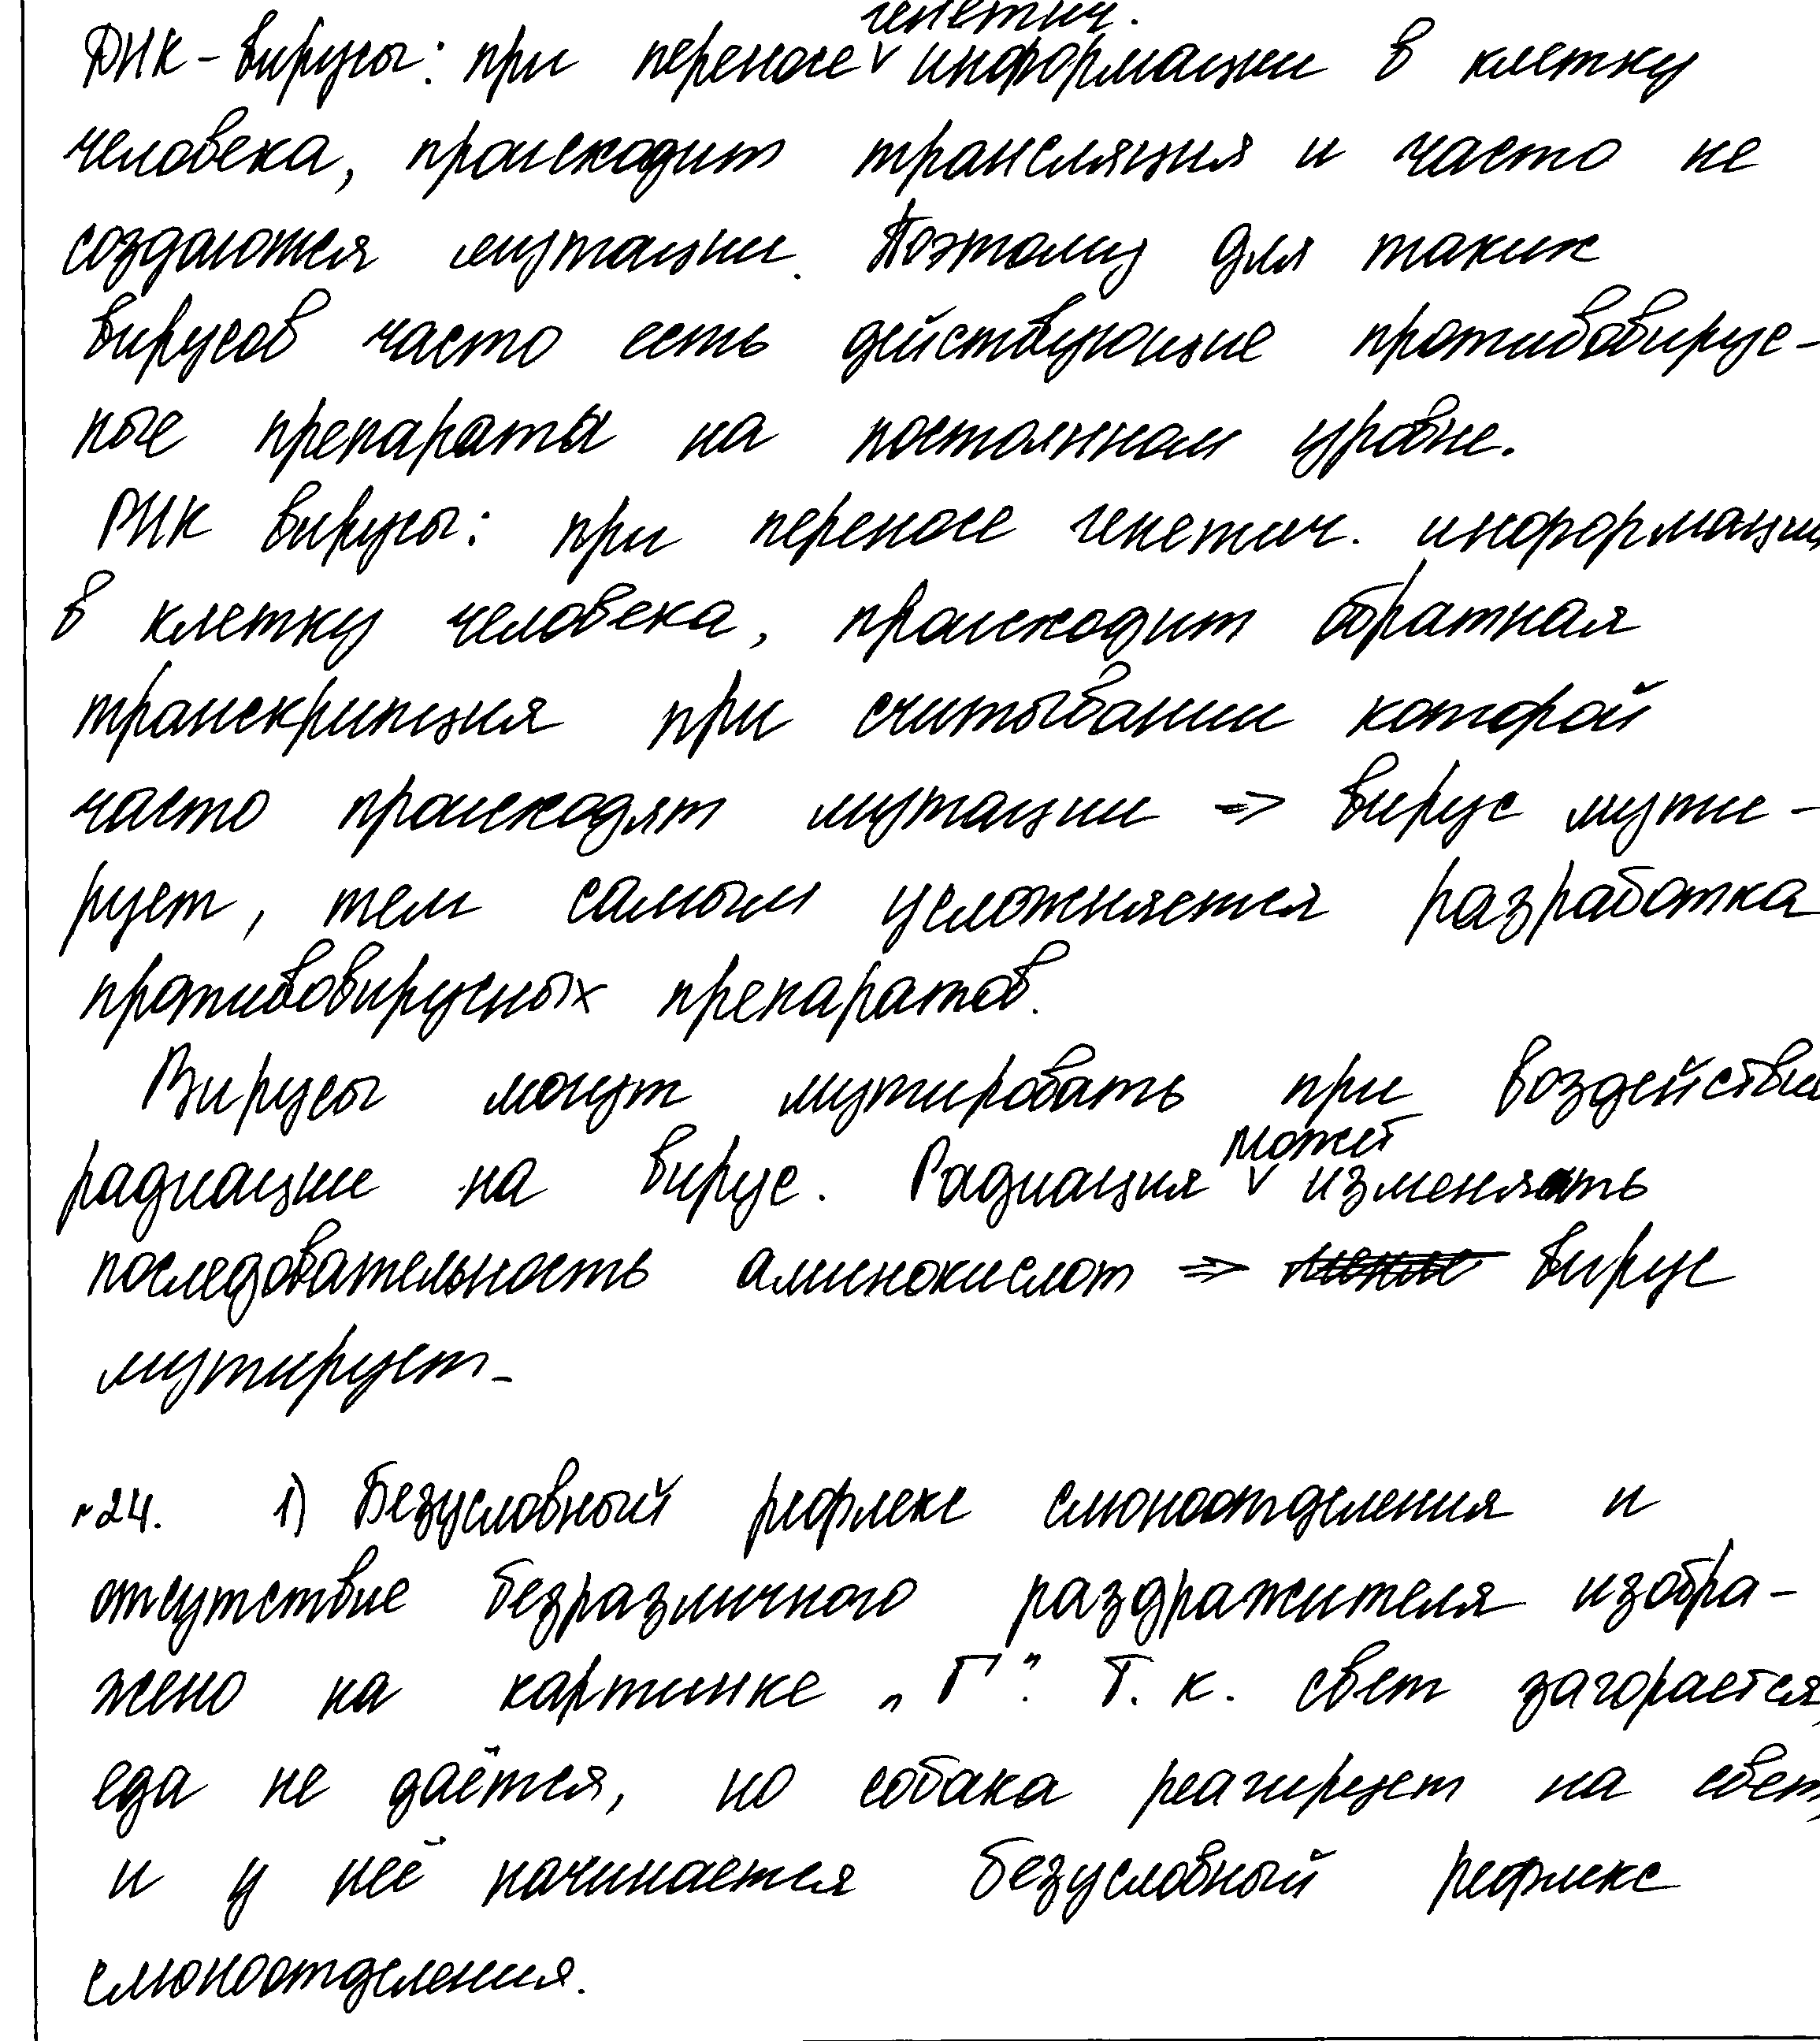 генетич.
ДНК-вирусы: при переносе ᵛ информации в клетку
человека, происходит трансляция и часто не
создаются мутации. Поэтому для таких
вирусов часто есть действующие противовирус-
ные препараты на постоянном уровне.
РНК вирусы: при переносе генетич. информации
в клетку человека, происходит обратная
транскрипция при считывании которой
часто происходят мутации => вирус мути-
рует, тем самым усложняется разработка
противовирусных препаратов.
Вирусы могут мутировать при воздействии
может
радиации на вирус. Радиация ᵛ изменять
последовательность аминокислот => вирус
мутирует.
№24. 1) Безусловный рефлекс слюноотделения и
отсутствие безразличного раздражителя изобра-
жено на картинке „Г". Т.к. свет загорается,
еда не даётся, но собака реагирует на свет,
и у неё начинается безусловный рефлекс
слюноотделения.